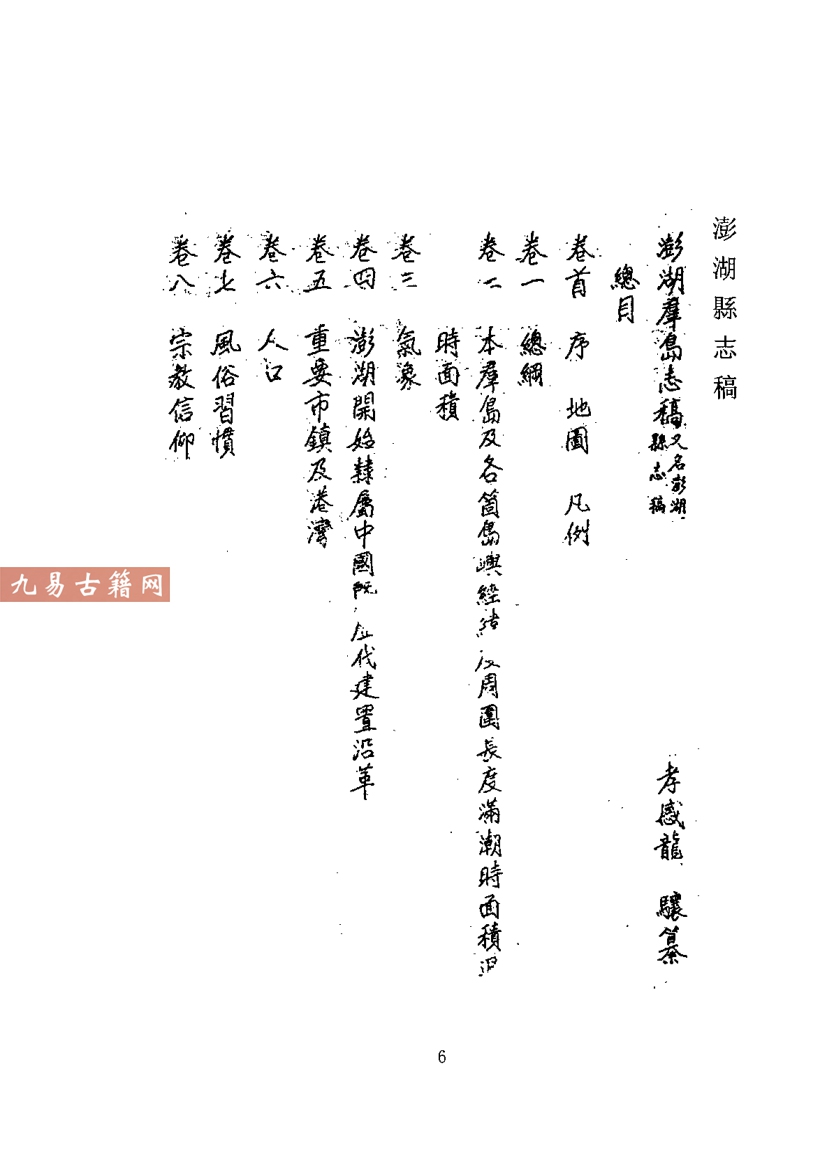 澎湖縣志稿
澎湖羣島志稿 又名澎湖縣志稿 孝感龍 驤纂
總目
卷首 序 地圖 凡例
卷一 總綱
卷二 本羣島及各箇島嶼經緯及周圍長度滿潮時面積
時面積
卷三 氣象
卷四 澎湖開始隸屬中國 代建置沿革
卷五 重要市鎮及港灣
卷六 人口
卷七 風俗習慣
卷八 宗教信仰
九易古籍网
6